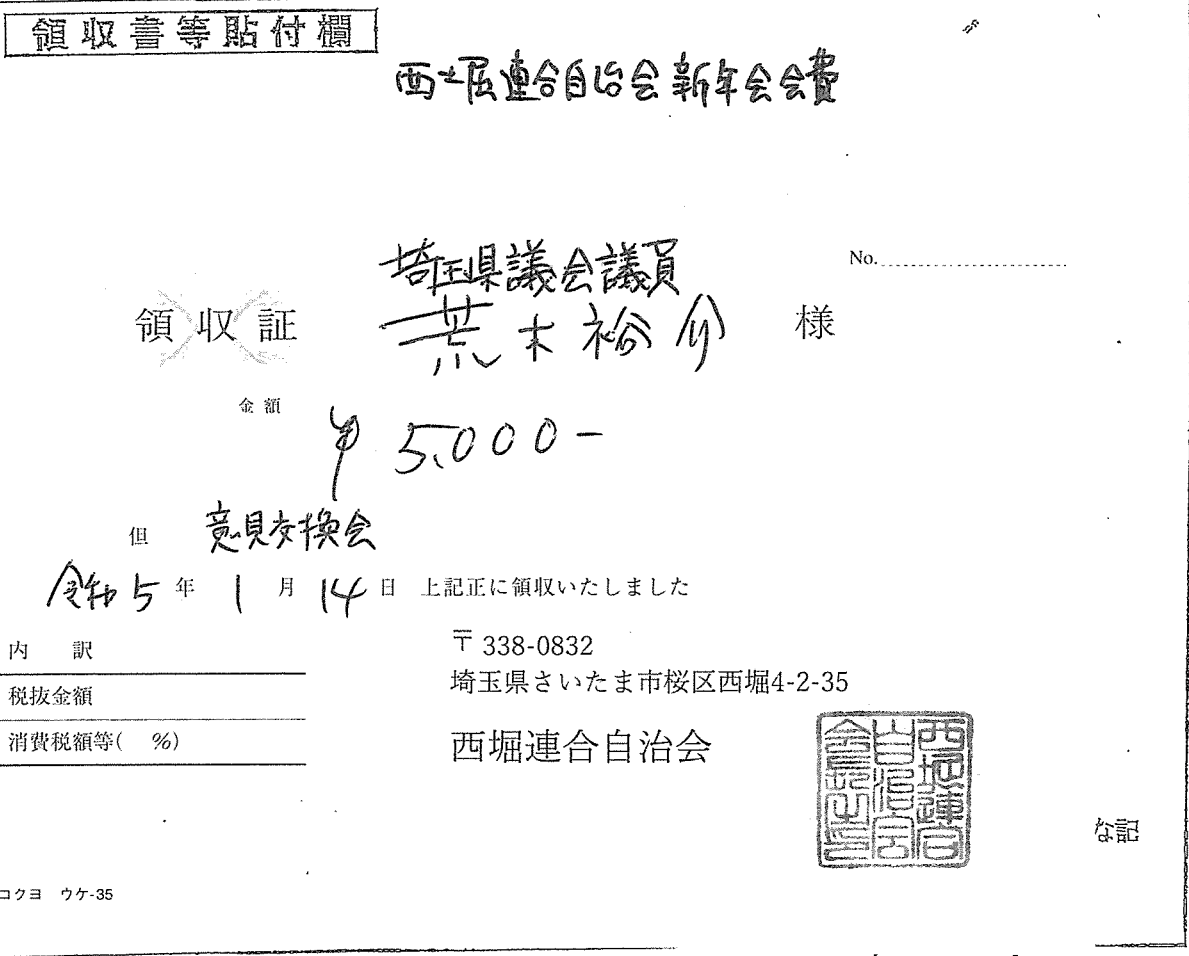 領収書等貼付欄
西堀連合自治会新年会会費
埼玉県議会議員
No.
領収証 荒木裕介 様
金額
¥5,000-
但 意見交換会
令和5年1月14日 上記正に領収いたしました
内 訳
税抜金額
消費税額等( %)
〒338-0832
埼玉県さいたま市桜区西堀4-2-35
西堀連合自治会
西堀連合自治会会長之印
な記
コクヨ ウケ-35